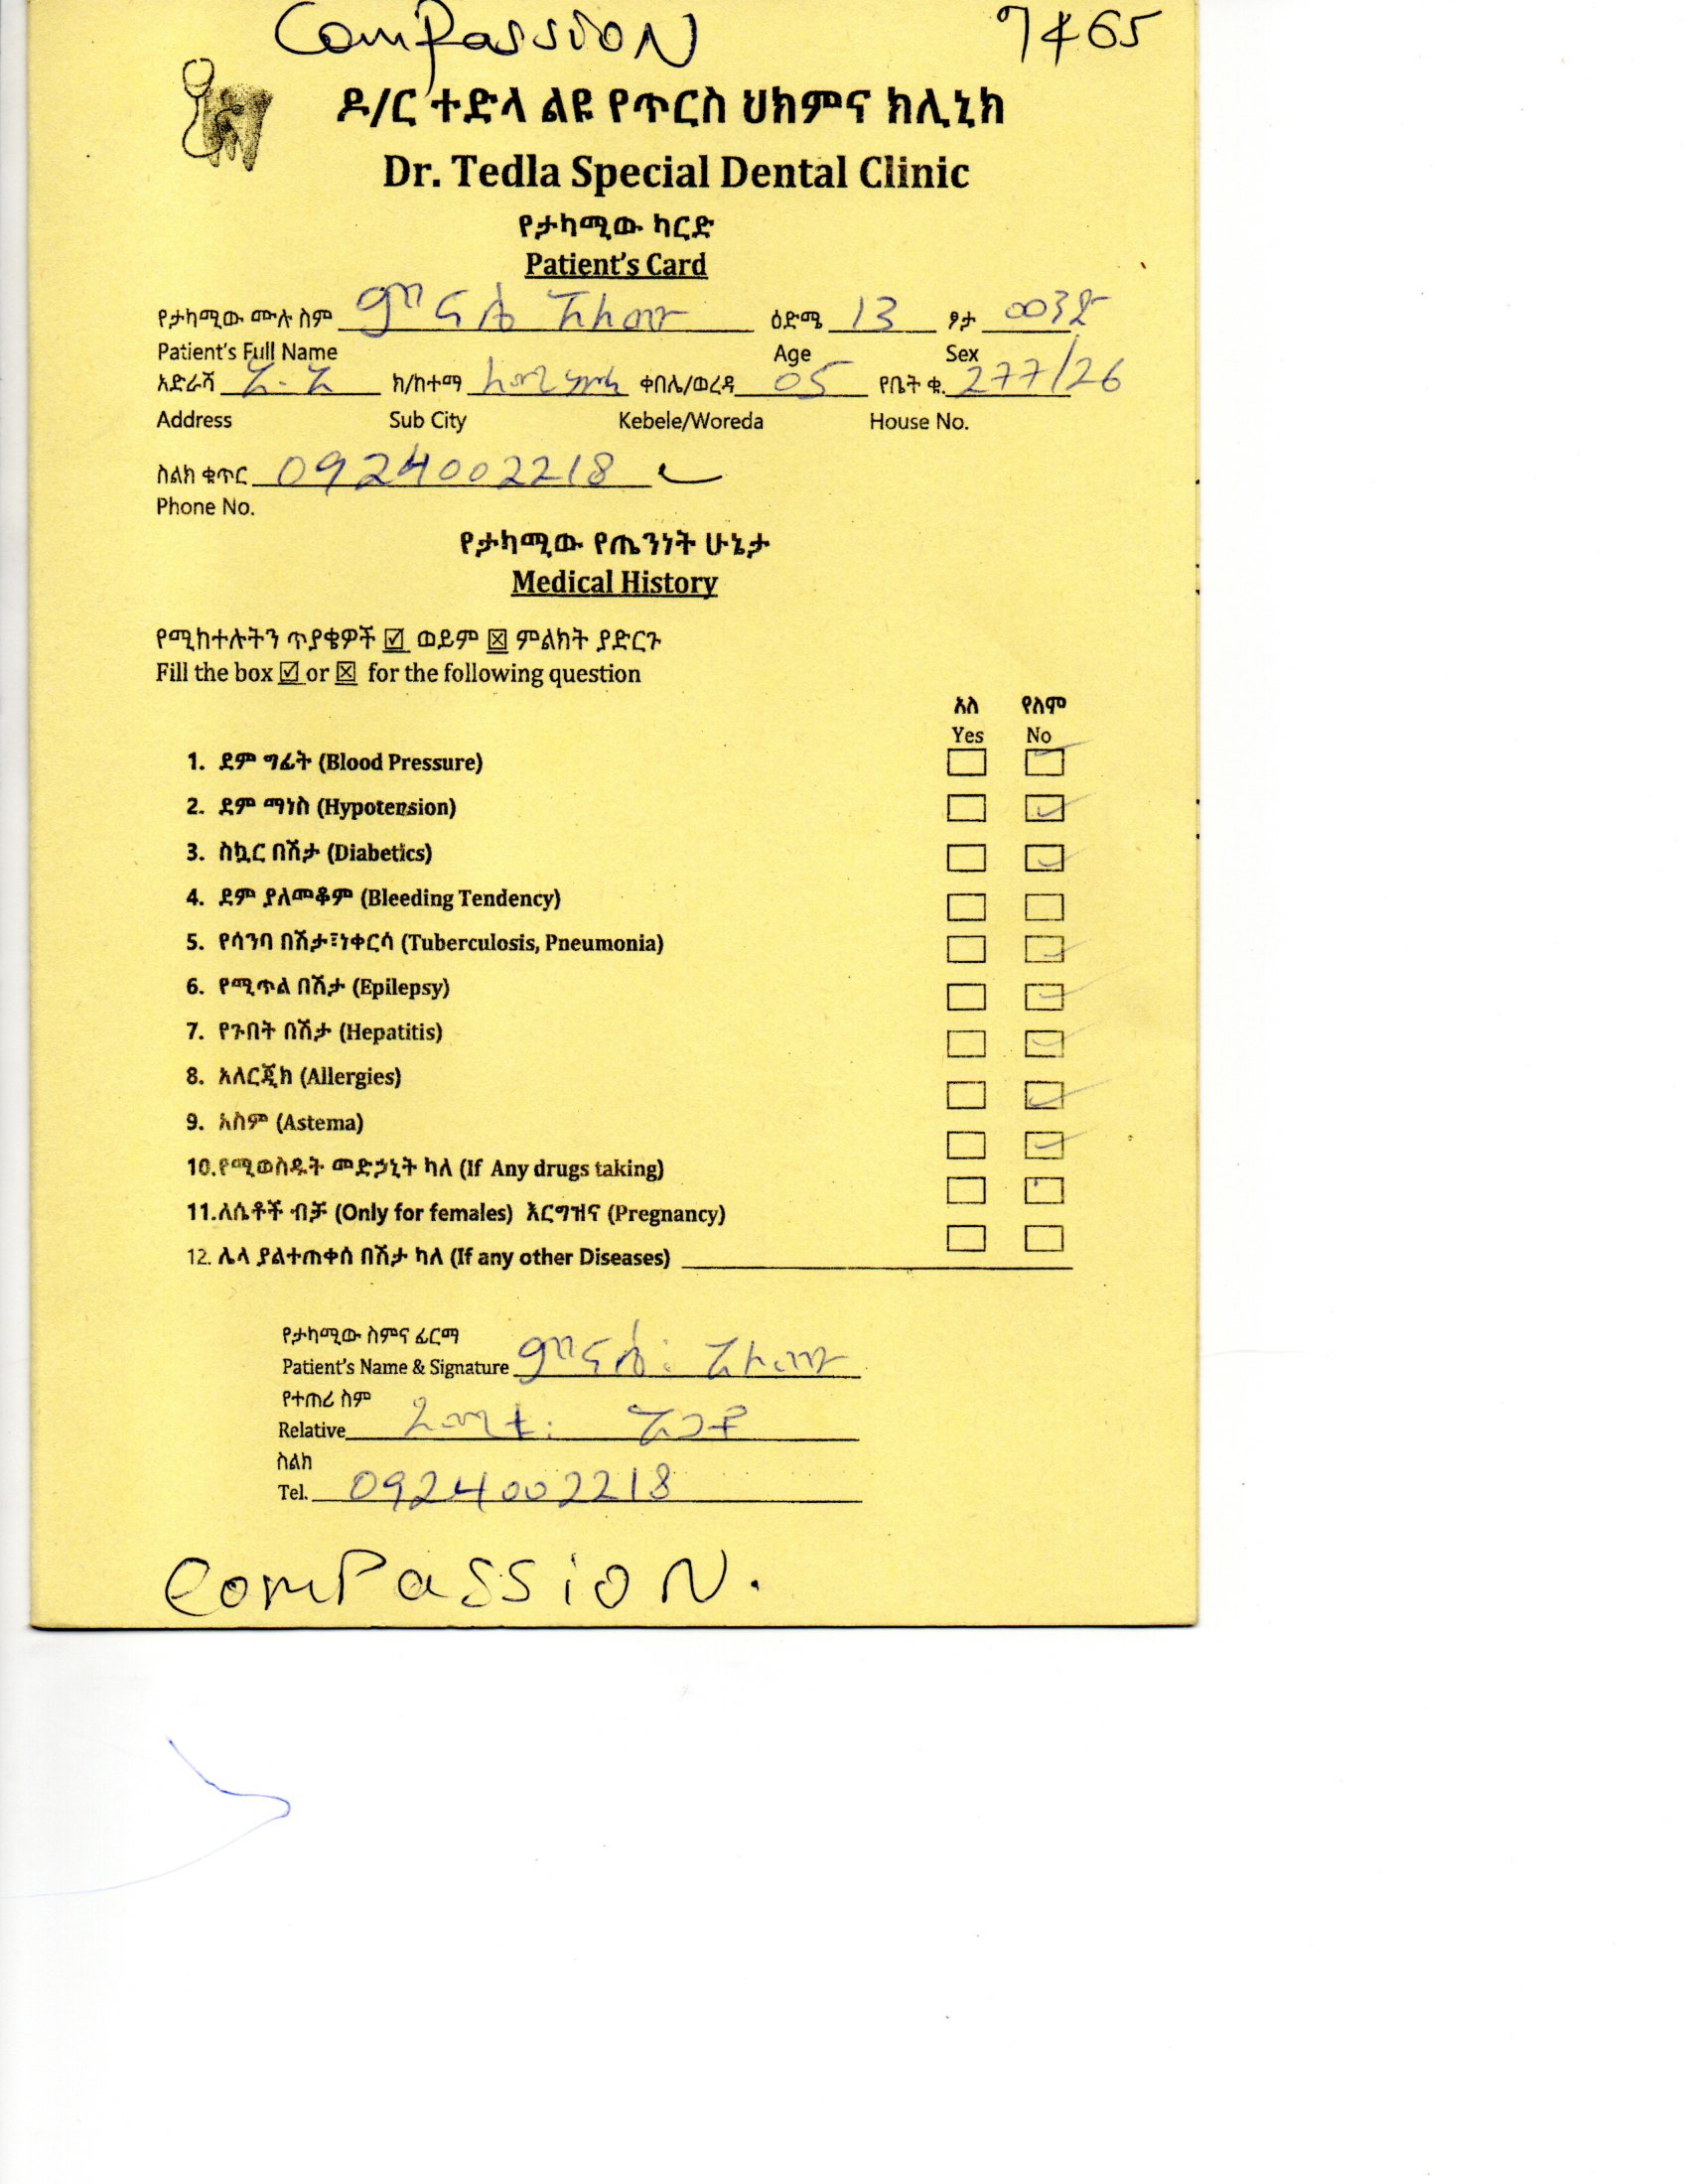 Compassion 7465
ዶ/ር ተድላ ልዩ የጥርስ ህክምና ክሊኒክ
Dr. Tedla Special Dental Clinic
የታካሚው ካርድ
Patient's Card
የታካሚው ሙሉ ስም ምናሴ ዕድሜ 13 ፆታ ወንድ
Patient's Full Name Age Sex
አድራሻ አ.አ ክ/ከተማ ቀበሌ/ወረዳ 05 የቤት ቁ. 277/26
Address Sub City Kebele/Woreda House No.
ስልክ ቁጥር 0924002218
Phone No.
የታካሚው የጤንነት ሁኔታ
Medical History
የሚከተሉትን ጥያቄዎች ☑ ወይም ☒ ምልክት ያድርጉ
Fill the box ☑ or ☒ for the following question
አለ የለም
Yes No
1. ደም ግፊት (Blood Pressure)
2. ደም ማነስ (Hypotension)
3. ስኳር በሽታ (Diabetics)
4. ደም ያለመቆም (Bleeding Tendency)
5. የሳንባ በሽታ፣ነቀርሳ (Tuberculosis, Pneumonia)
6. የሚጥል በሽታ (Epilepsy)
7. የጉበት በሽታ (Hepatitis)
8. አለርጂክ (Allergies)
9. አስም (Astema)
10.የሚወስዱት መድኃኒት ካለ (If Any drugs taking)
11.ለሴቶች ብቻ (Only for females) እርግዝና (Pregnancy)
12. ሌላ ያልተጠቀሰ በሽታ ካለ (If any other Diseases)
የታካሚው ስምና ፊርማ
Patient's Name & Signature ምናሴ
የተጠሪ ስም
Relative
ስልክ
Tel. 0924002218
Compassion.